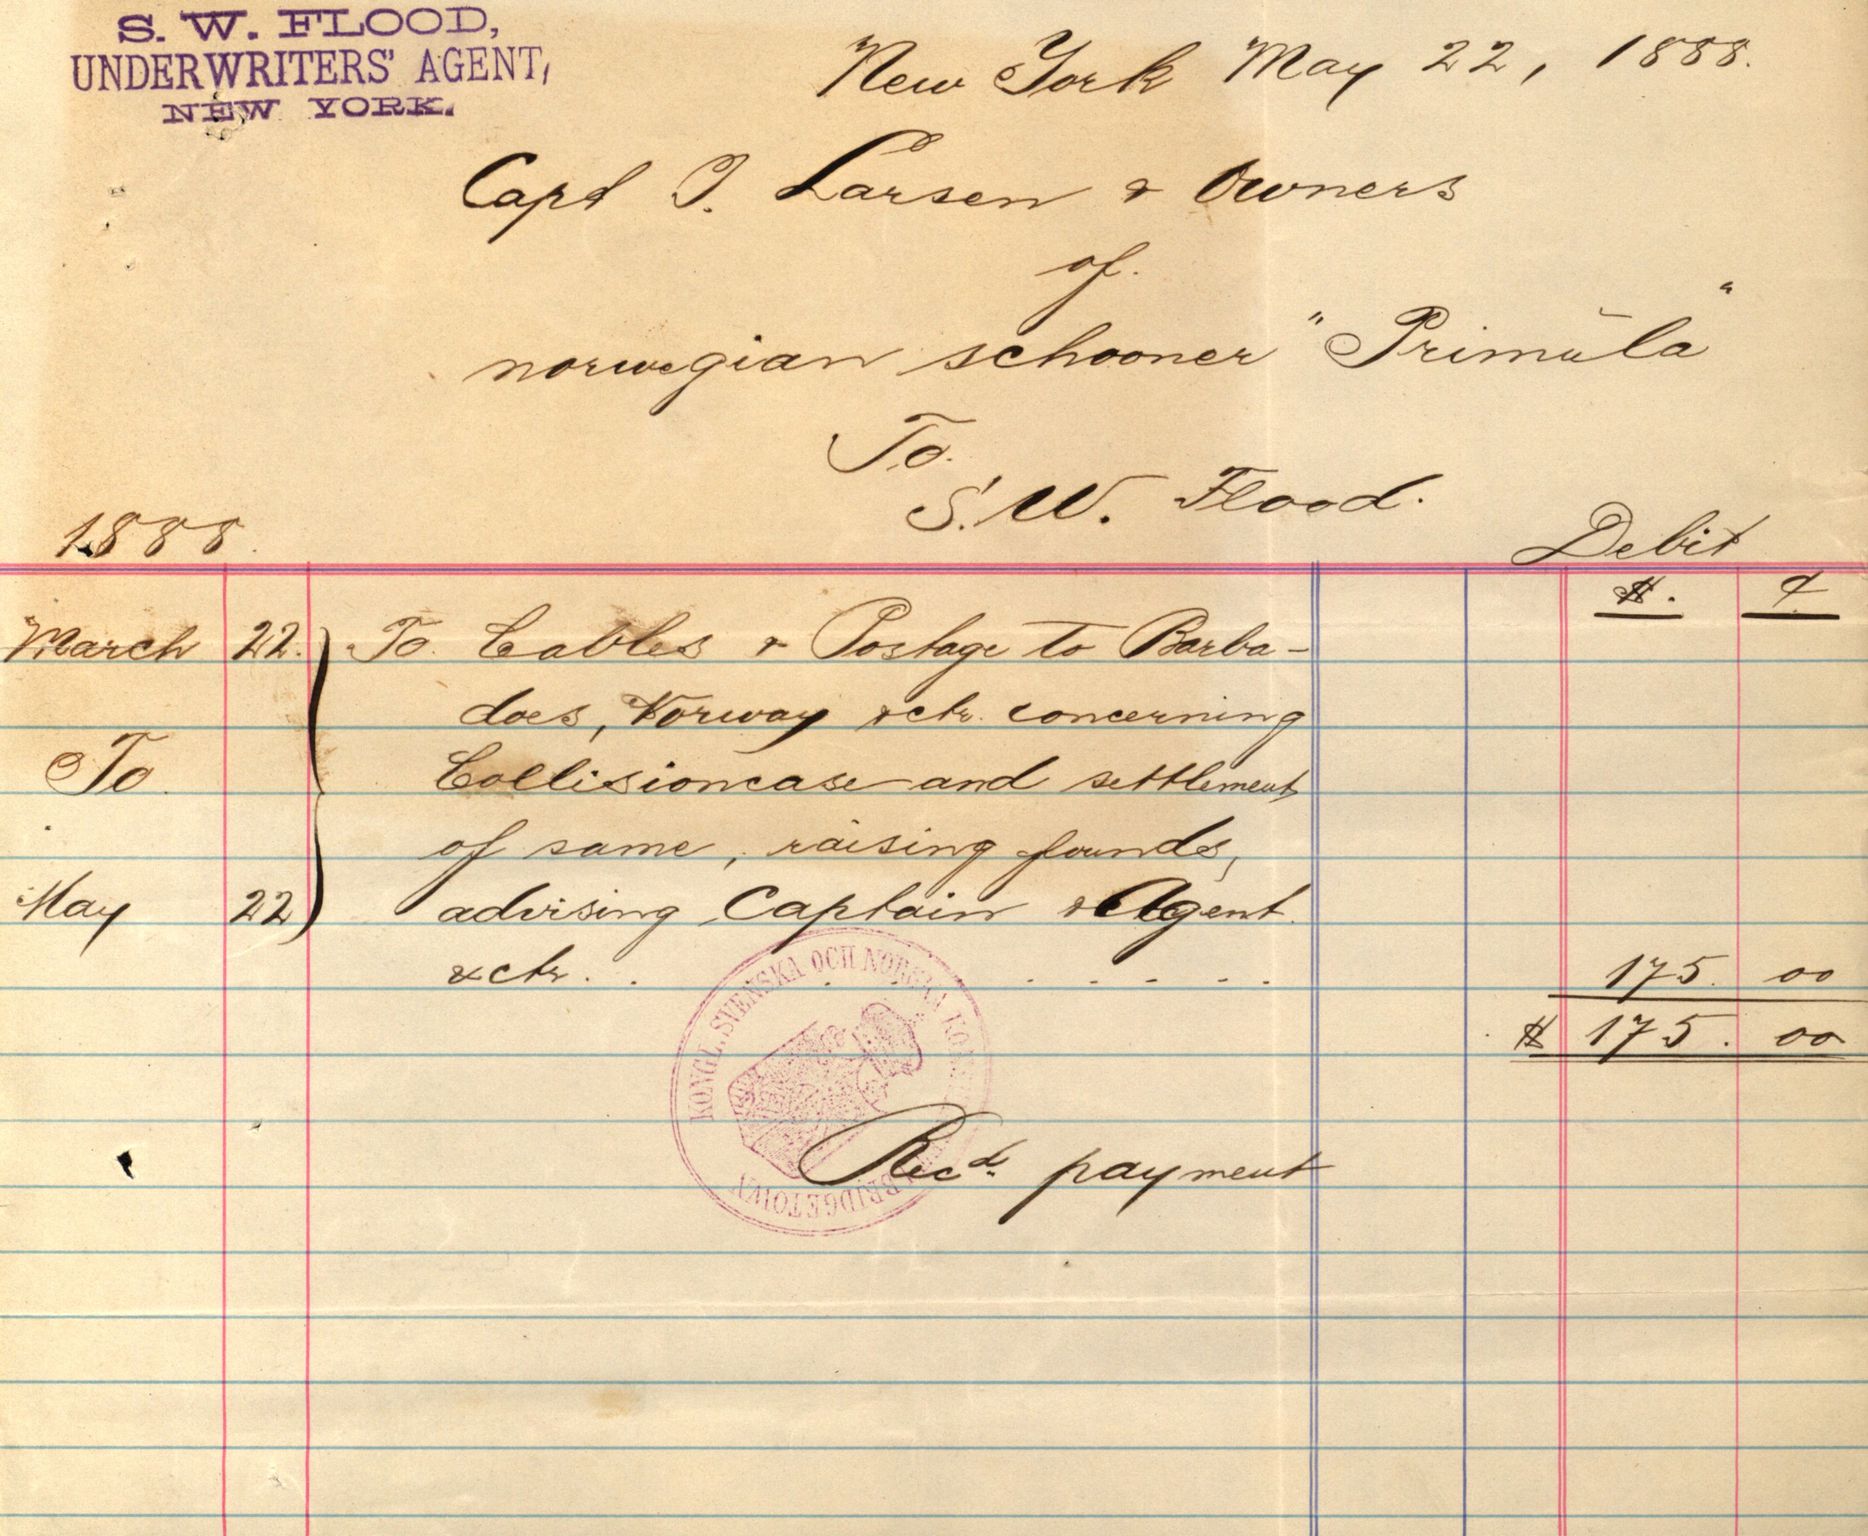 S. W. FLOOD,
UNDERWRITERS' AGENT,
NEW YORK.
New York May 22, 1888.
Capt J. Larsen & Owners
of.
norwegian schooner "Primŭla"
To.
S. W. Flood.
1888.
Debit
$. ¢
March 22. To Cables & Postage to Barba-
does, Norway &ctr. concerning
To. Collisioncase and settlement
of same, raising founds,
May 22 advising Captain & Agent.
&ctr. . . . . . . . 175. 00
$ 175. 00
KONGL. SVENSKA OCH NORSKA
BRIDGETOWN
Recd. payment